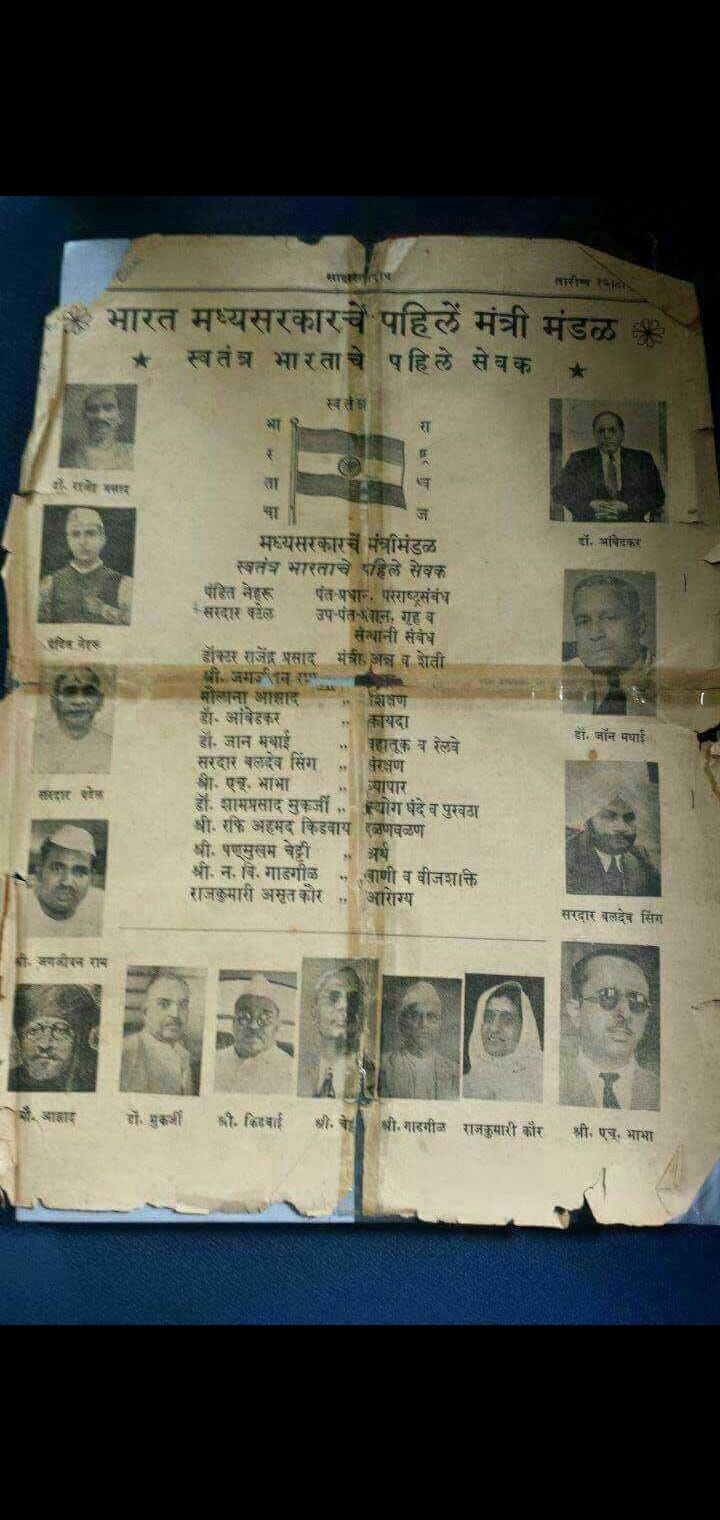 तारीख
भारत मध्यसरकारचें पहिलें मंत्री मंडळ
स्वतंत्र भारताचे पहिले सेवक
स्वतंत्र
भा र ता चा
रा ष्ट्र ध्व ज
मध्यसरकारचें मंत्रीमंडळ
स्वतंत्र भारताचे पहिले सेवक
पंडित नेहरू पंत-प्रधान, परराष्ट्रसंबंध
सरदार पटेल उप-पंत-प्रधान, गृह व
संस्थानी संबंध
डॉक्टर राजेंद्र प्रसाद मंत्री, अन्न व शेती
श्री. जगजीवन राम
मौलाना आझाद ,, शिक्षण
डॉ. आंबेडकर ,, कायदा
डॉ. जान मथाई ,, वहातूक व रेलवे
सरदार बलदेव सिंग ,, संरक्षण
श्री. एच्. भाभा ,, व्यापार
डॉ. शामप्रसाद मुकर्जी ,, उद्योग धंदे व पुरवठा
श्री. रफि अहमद किडवाय दळणवळण
श्री. षण्मुखम चेट्टी ,, अर्थ
श्री. न. वि. गाडगीळ ,, पाणी व वीजशक्ति
राजकुमारी अमृत कौर ,, आरोग्य
डॉ. राजेंद्र प्रसाद
पंडित नेहरू
सरदार पटेल
श्री. जगजीवन राम
डॉ. आंबेडकर
डॉ. जॉन मथाई
सरदार बलदेव सिंग
मौ. आझाद डॉ. मुकर्जी श्री. किडवाई श्री. श्री. गाडगीळ राजकुमारी कौर श्री. एच्. भाभा